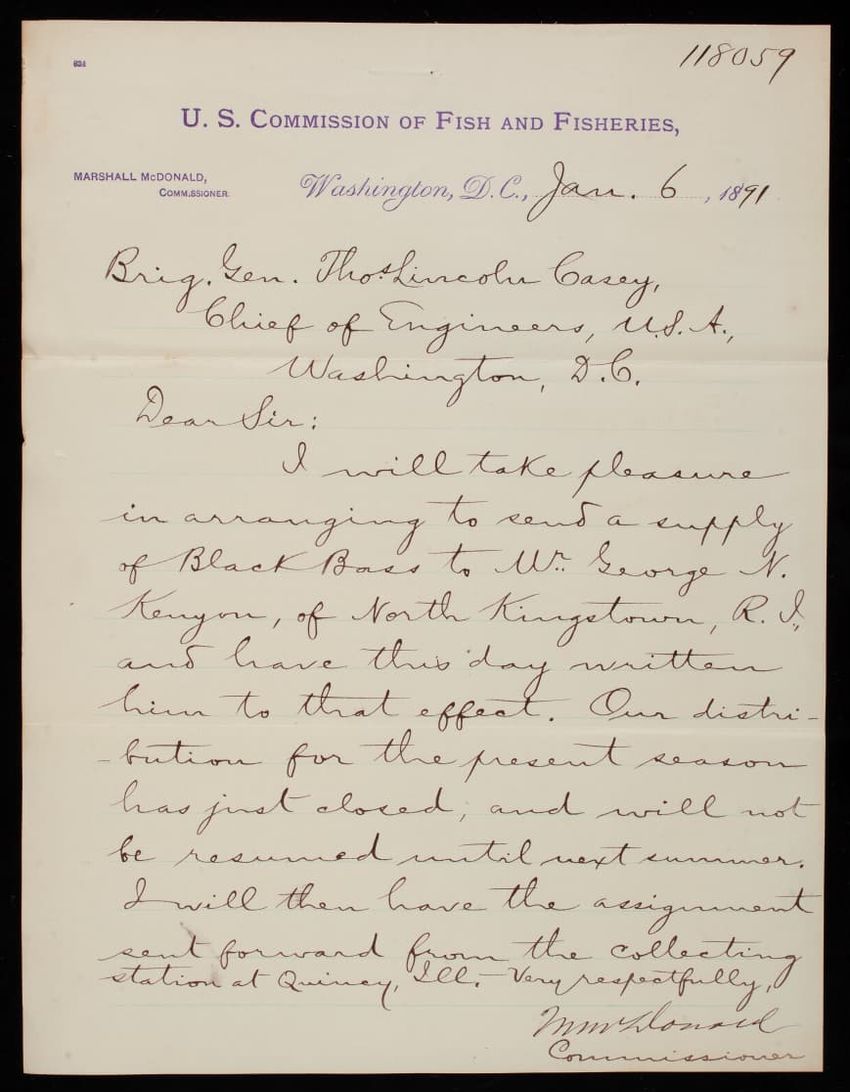 634
118059
U. S. COMMISSION OF FISH AND FISHERIES,
MARSHALL McDONALD,
COMMISSIONER.
Washington, D.C., Jan. 6, 1891
Brig. Gen. Thos Lincoln Casey,
Chief of Engineers, U.S.A.,
Washington, D.C.
Dear Sir:
I will take pleasure
in arranging to send a supply
of Black Bass to Mr. George N.
Kenyon, of North Kingstown, R. I.,
and have this day written
him to that effect. Our distri-
-bution for the present season
has just closed, and will not
be resumed until next summer.
I will then have the assignment
sent forward from the collecting
station at Quincy, Ill. – Very respectfully,
M McDonald
Commissioner